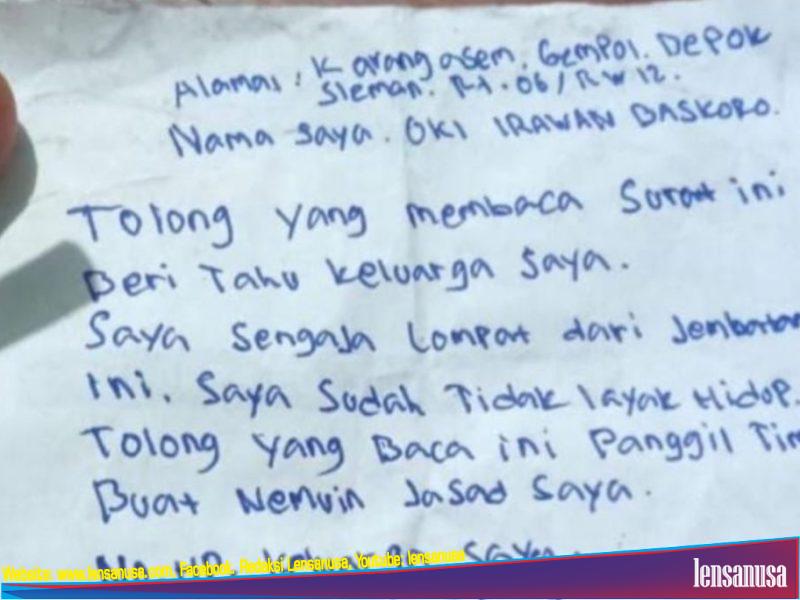 Alamat : Karangasem. Gempol. Depok
Sleman. Rt. 06 / RW 12.
Nama saya. OKI IRAWAN BASKORO.
Tolong yang membaca Surat ini
Beri Tahu keluarga saya.
Saya Sengaja Lompat dari Jembatan
ini. Saya Sudah Tidak layak Hidup.
Tolong yang Baca ini Panggil Tim
Buat Nemuin Jasad saya.
saya
Website: www.lensanusa.com, Facebook, Redaksi Lensanusa, Youtube: lensanusa
lensanusa